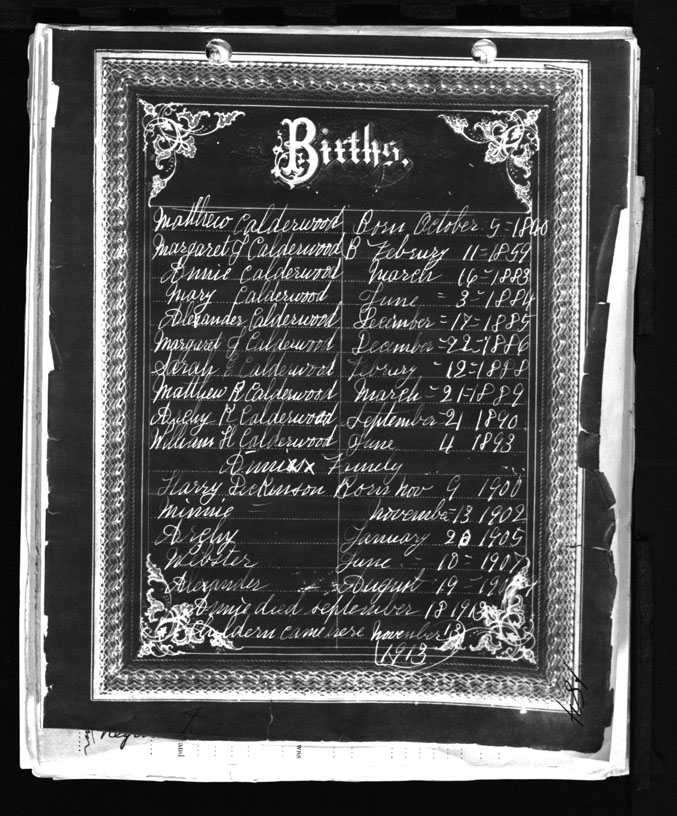 Births.
Matthew Calderwood Born October 5=1840
Margaret J Calderwood B Februry 11=1859
Annie Calderwood March 16=1883
Mary Calderwood June = 3=1884
Alexander Calderwood December=17=1885
Margaret J Calderwood December=22=1886
Sarah E Calderwood Februry =12=1888
Matthew R Calderwood March=21=1889
Calderwood September=21 1890
William H Calderwood June 4 1893
Annis Fumily
Harry Dickinson Born nov 9 1900
Minnie = novembe=13 1902
January 1905
Webster June = 10= 1907
Alexander August 19
Annie died september 18 1913
Childern came here november 13
1913
and
was